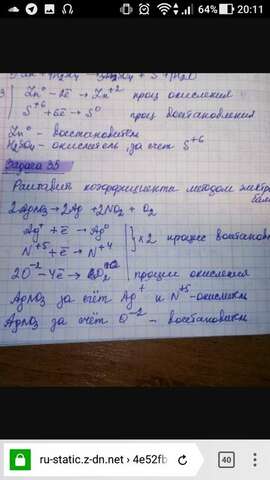 64% 20:11
Zn⁰ - 2ē → Zn⁺² проц окисления
S⁺⁶ + 6ē → S⁰ проц восстановления
Zn⁰ - восстановитель
H₂SO₄ - окислитель, за счет S⁺⁶
Задача 35
Расставить коэффициенты методом электр
бал
2AgNO₃ → 2Ag + 2NO₂ + O₂
Ag⁺ + ē → Ag⁰
N⁺⁵ + ē → N⁺⁴ } x 2 процесс восстанов
2O⁻² - 4ē → O₂⁰ процесс окисления
AgNO₃ за счёт Ag⁺ и N⁺⁵ - окислит
AgNO₃ за счёт O⁻² - восстановит
ru-static.z-dn.net › 4e52fb 40